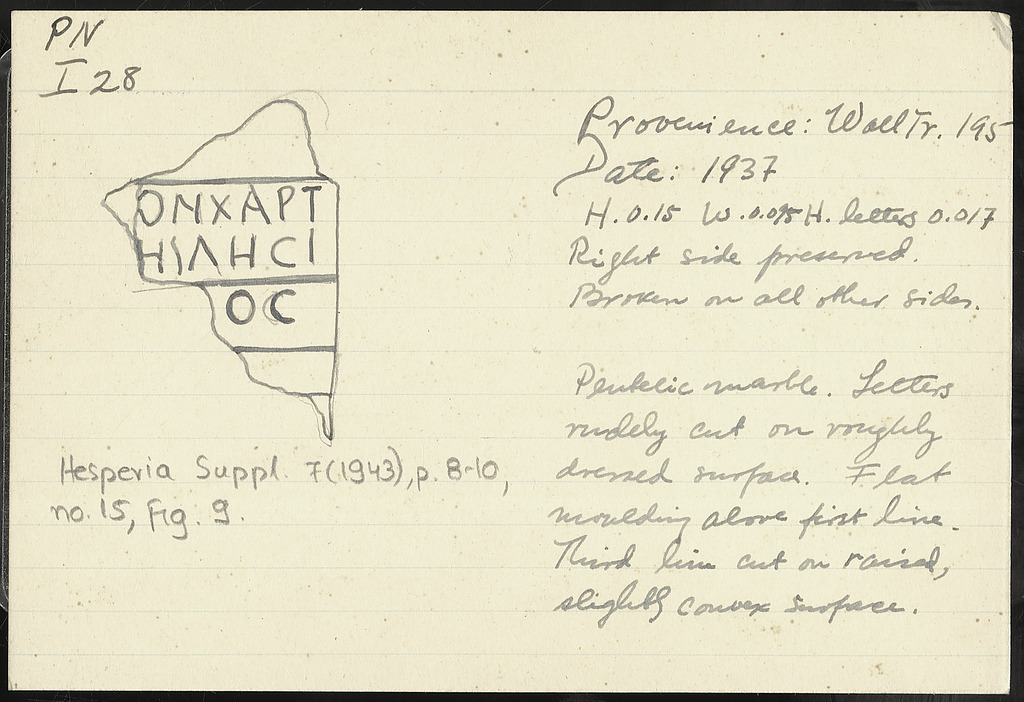 PN
I 28
ΟΝΧΑΡΤ
ΗΣΛΗCΙ
ΟC
Hesperia Suppl. 7(1943), p. 8-10,
no. 15, fig. 9.
Provenience: Wall Tr. 195
Date: 1937
H. 0.15 W. 0.095 H. letters 0.017
Right side preserved.
Broken on all other sides.
Pentelic marble. Letters
rudely cut on roughly
dressed surface. Flat
moulding above first line.
Third line cut on raised,
slightly convex surface.